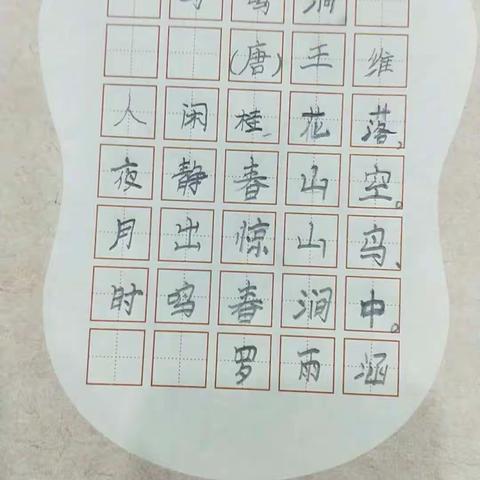 鸟鸣涧
(唐)王维
人闲桂花落,
夜静春山空。
月出惊山鸟,
时鸣春涧中。
罗雨涵